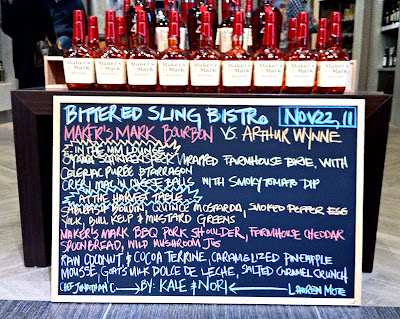 Maker's Mark
Maker's Mark
Maker's Mark
Maker's Mark
Maker's Mark
BITTERED SLING BISTRO NOV 22, 11
MAKER'S MARK BOURBON VS ARTHUR WYNNE
IN THE MM LOUNGE
WRAPPED FARMHOUSE BRIE, WITH
CELERIAC PURÉE & TARRAGON
CRISPY MAC 'N CHEESE BALLS WITH SMOKY TOMATO DIP
AT THE HARVEST TABLE
SABLEFISH BOUDIN, QUINCE MOSTARDA, SMOKED PEPPER EGG
YOLK, BULL KELP & MUSTARD GREENS
MAKER'S MARK BBQ PORK SHOULDER, FARMHOUSE CHEDDAR
SPOONBREAD, WILD MUSHROOM JUS
RAIN COCONUT & COCOA TERRINE, CARAMELIZED PINEAPPLE
MOUSSE, GOAT'S MILK DOLCE DE LECHE, SALTED CARAMEL CRUNCH
CHEF JONATHAN C BY: KALE & NORI LAUREN MOTE